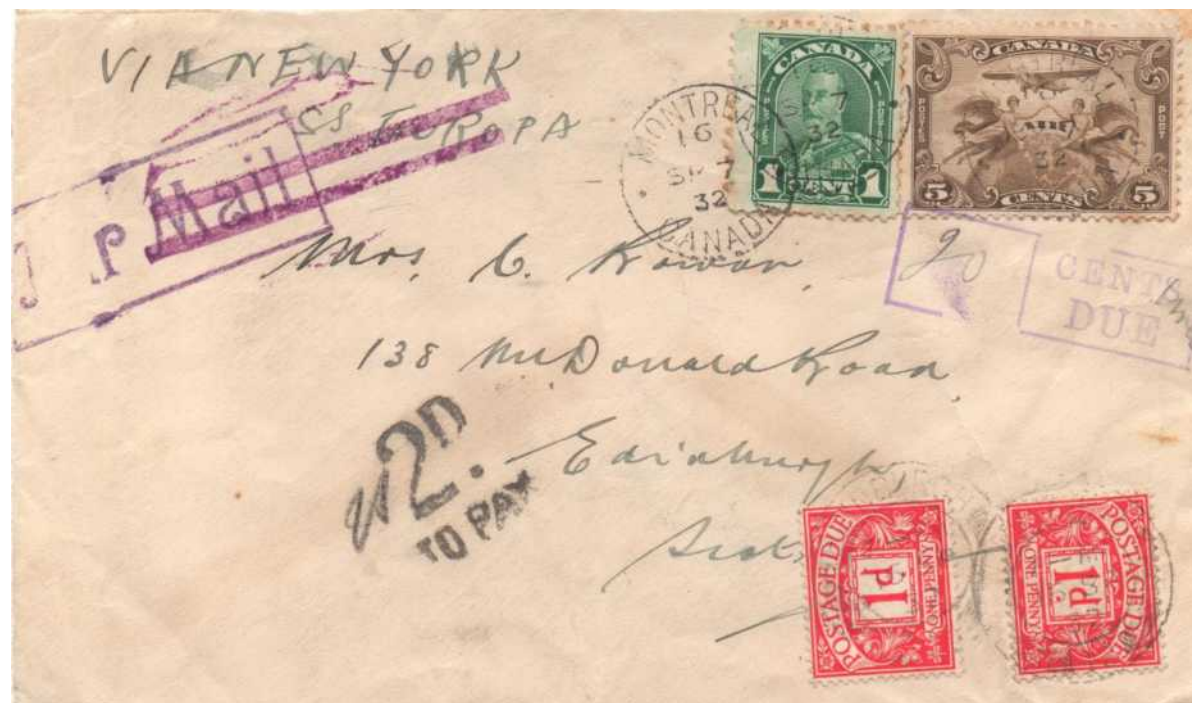 VIA NEW YORK
SS EUROPA
Mail
MONTREAL
16
SP 7
32
CANADA
SP 7
32
CANADA
1 CENT 1
CANADA
5 CENTS 5
Mrs. C. Rowan
20
CENTS
DUE
138 McDonald Road,
Edinburgh
2D.
TO PAY
POSTAGE DUE
1d
ONE PENNY
POSTAGE DUE
1d
ONE PENNY